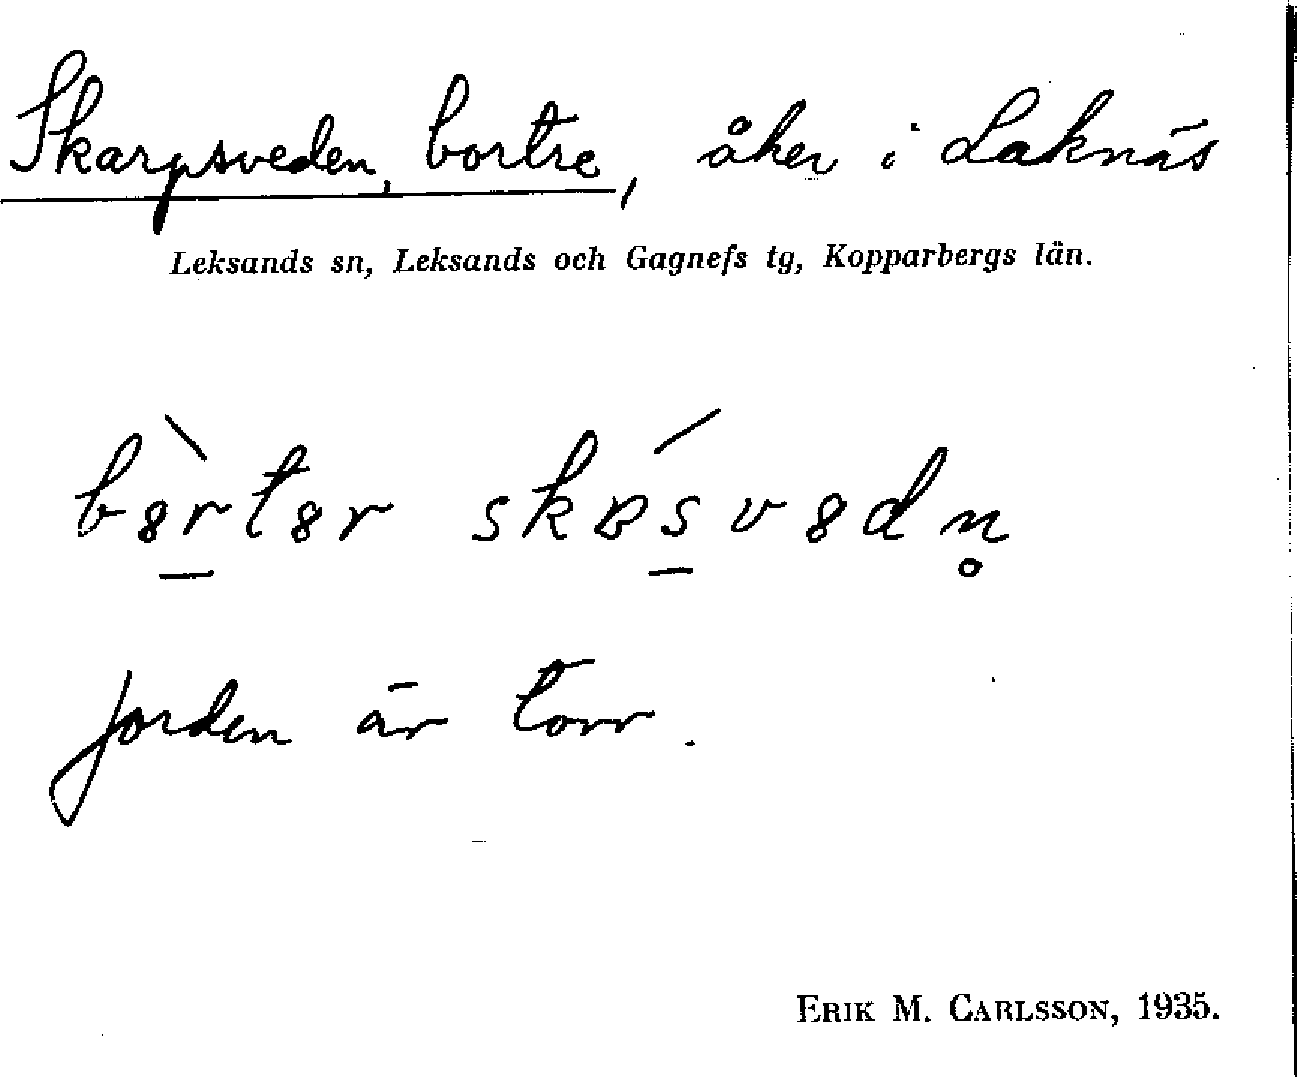 Skarpsveden, bortre, åker i Laknäs
Leksands sn, Leksands och Gagnefs tg, Kopparbergs län.
Jorden är torr.
ERIK M. CARLSSON, 1935.